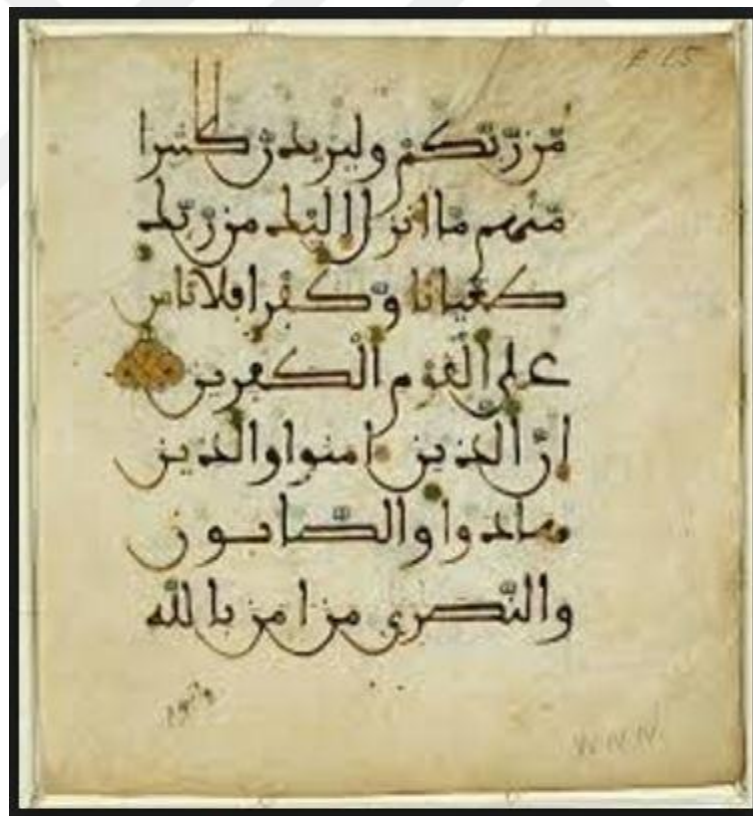 E.L5
مِّن رَّبِّكُمْ وليزيدن كثيرا
مّنهم مّا أنزل إليك من رّبّك
طغيانا وّكفرا فلا تاس
على ٱلقوم ٱلكٰفرين
إنّ ٱلذين ءامنوا وٱلذين
هادوا وٱلصّٰبون
وٱلنّصٰرى من ءامن بالله
W.N.N.